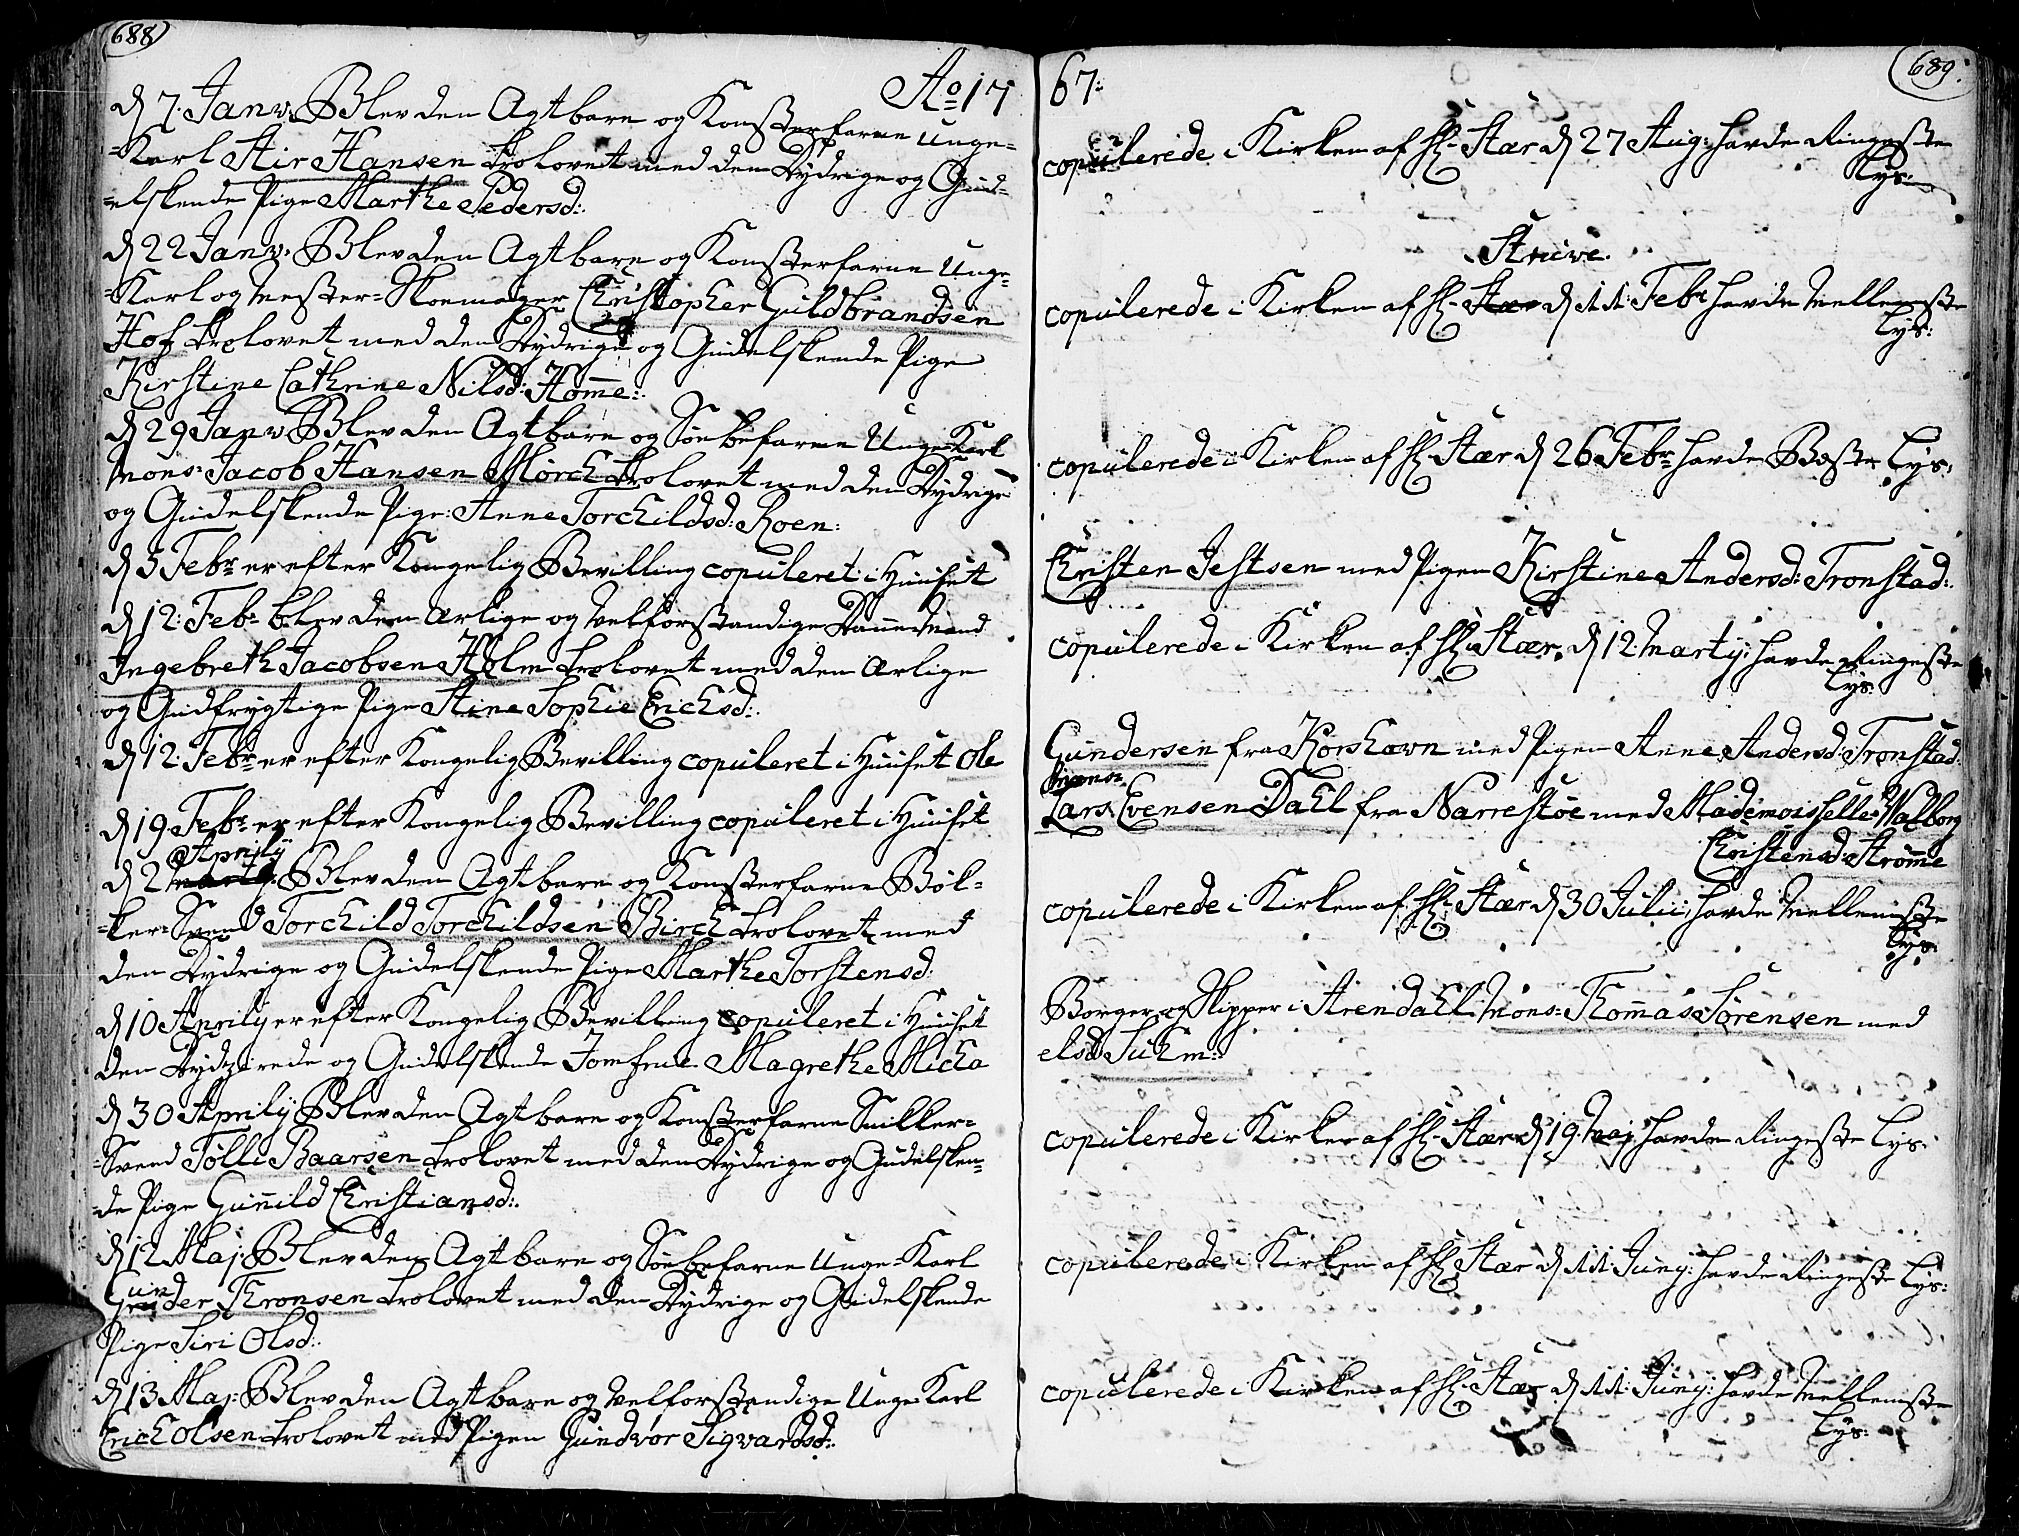 688
Ao 17
d 7. Janv: Blev den Agtbare og Konsterfarne unge-
-Karl Air Hansen trolovet med den Dydrige og Gud-
-elskende Pige Marthe Pedersd:
d 22 Janv: Blev den Agtbare og Konsterfarne Unge-
-Karl og Mester-Skoemager Christopher Guldbrandsen
Hof trolovet med den Dydrige og Gudelskende Pige
Kirstine Cathrine Nilsd: Homme:
d 29 Janv Blev den Agtbare og Søebefarne Unge Karl
Mons: Jacob Hansen Mørch trolovet med den Dydrige
og Gudelskende Pige: Anne Torchildsd: Roen:
d 5 Febr er efter Kongelig Bevilling copuleret i Huuset
d 12: Febr blev den ærlige og Velforstandige Dannemand
Ingebreth Jacobsen Holm trolovet med den ærlige
og Gudfrygtige Pige Stine Sophie Erichsd:
d 12: Febr er efter Kongelig Bevilling copuleret i Huuset Ole
d 19 Febr er efter Kongelig Bevilling copuleret i Huuset
Aprily
d 2 Marty: Blev den Agtbare og Konsterfarne Bøl-
-ker-Svend Torchild Torchildsen Birch trolovet med
den Dydrige og Gudelskende Pige Marthe Torstensd:
d 10 Aprily er efter Kongelig Bevilling copuleret i Huuset
den Dydzirede og Gudelskende Jomfrue Magrethe Micha
d 30 Aprily Blev den Agtbare og Konsterfarne Sniller-
-Svend Tølle Baarsen trolovet med den Dydrige og Gudelsken-
-de Pige Gunnild Christiansd:
d 12 Maj: Blev den Agtbare og Søebefarne Unge-Karl
Gunder Thronsen trolovet med den Dydrige og Gudelskende
Pige Siri Olsd:
d 13 Maj: Blev den Agtbare og Velforstandige Unge Karl
Erich Olsen trolovet med Pigen Gundvor Sigvardsd:
689
67:
copulerede i Kirken af Hr Stær d 27 Aug: havde Ringeste
Lys:
Struve
copulerede i Kirken af Hr Stær d 11 Febr havde Mellemste
Lys:
copulerede i Kirken af Hr Stær d 26 Febr havde Beste Lys:
Christen Jestsen med Pigen Kirstine Andersd: Tronstad:
copulerede i Kirken af Hr Stær, d 12 Marty: havde Ringeste
Lys:
Gundersen fra Korshavn med Pigen Anne Andersd: Tronstad:
Mons:
Lars Evensen Dahl fra Narrestøe med Mademoisselle Walborg
Christensd: Strømme
copulerede i Kirken af Hr Stær d 30 Julii, havde Mellemste
Lys:
Borger og Skipper i Arendahl Mons: Thommas Sørensen med
elsd: Suhm:
copulerede i Kirken af Hr Stær d 19 Maj: havde Ringeste Lys:
copulerede i Kirken af Hr Stær d 11 Juny: havde Ringeste Lys:
copulerede i Kirken af Hr Stær d 11 Juny: havde Mellemste
Lys: